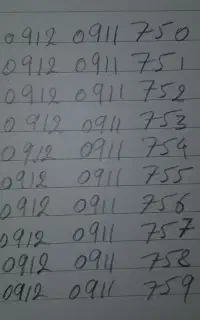 0912 0911 750
0912 0911 751
0912 0911 752
0912 0911 753
0912 0911 754
0912 0911 755
0912 0911 756
0912 0911 757
0912 0911 758
0912 0911 759